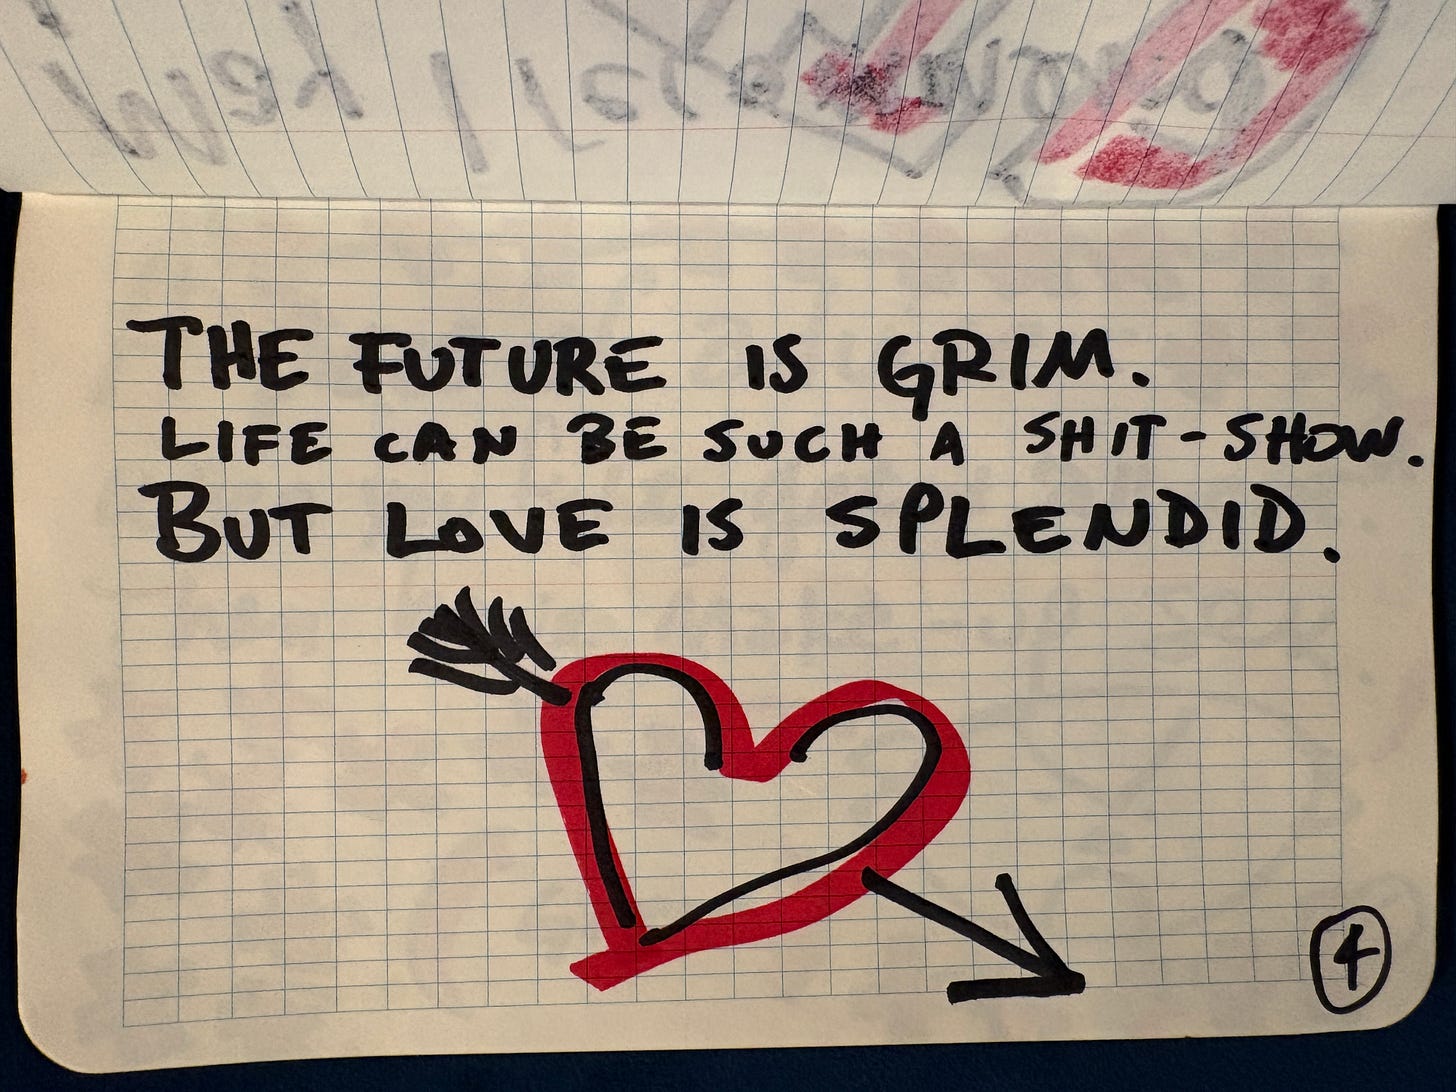 THE FUTURE IS GRIM.
LIFE CAN BE SUCH A SHIT-SHOW.
BUT LOVE IS SPLENDID.
4